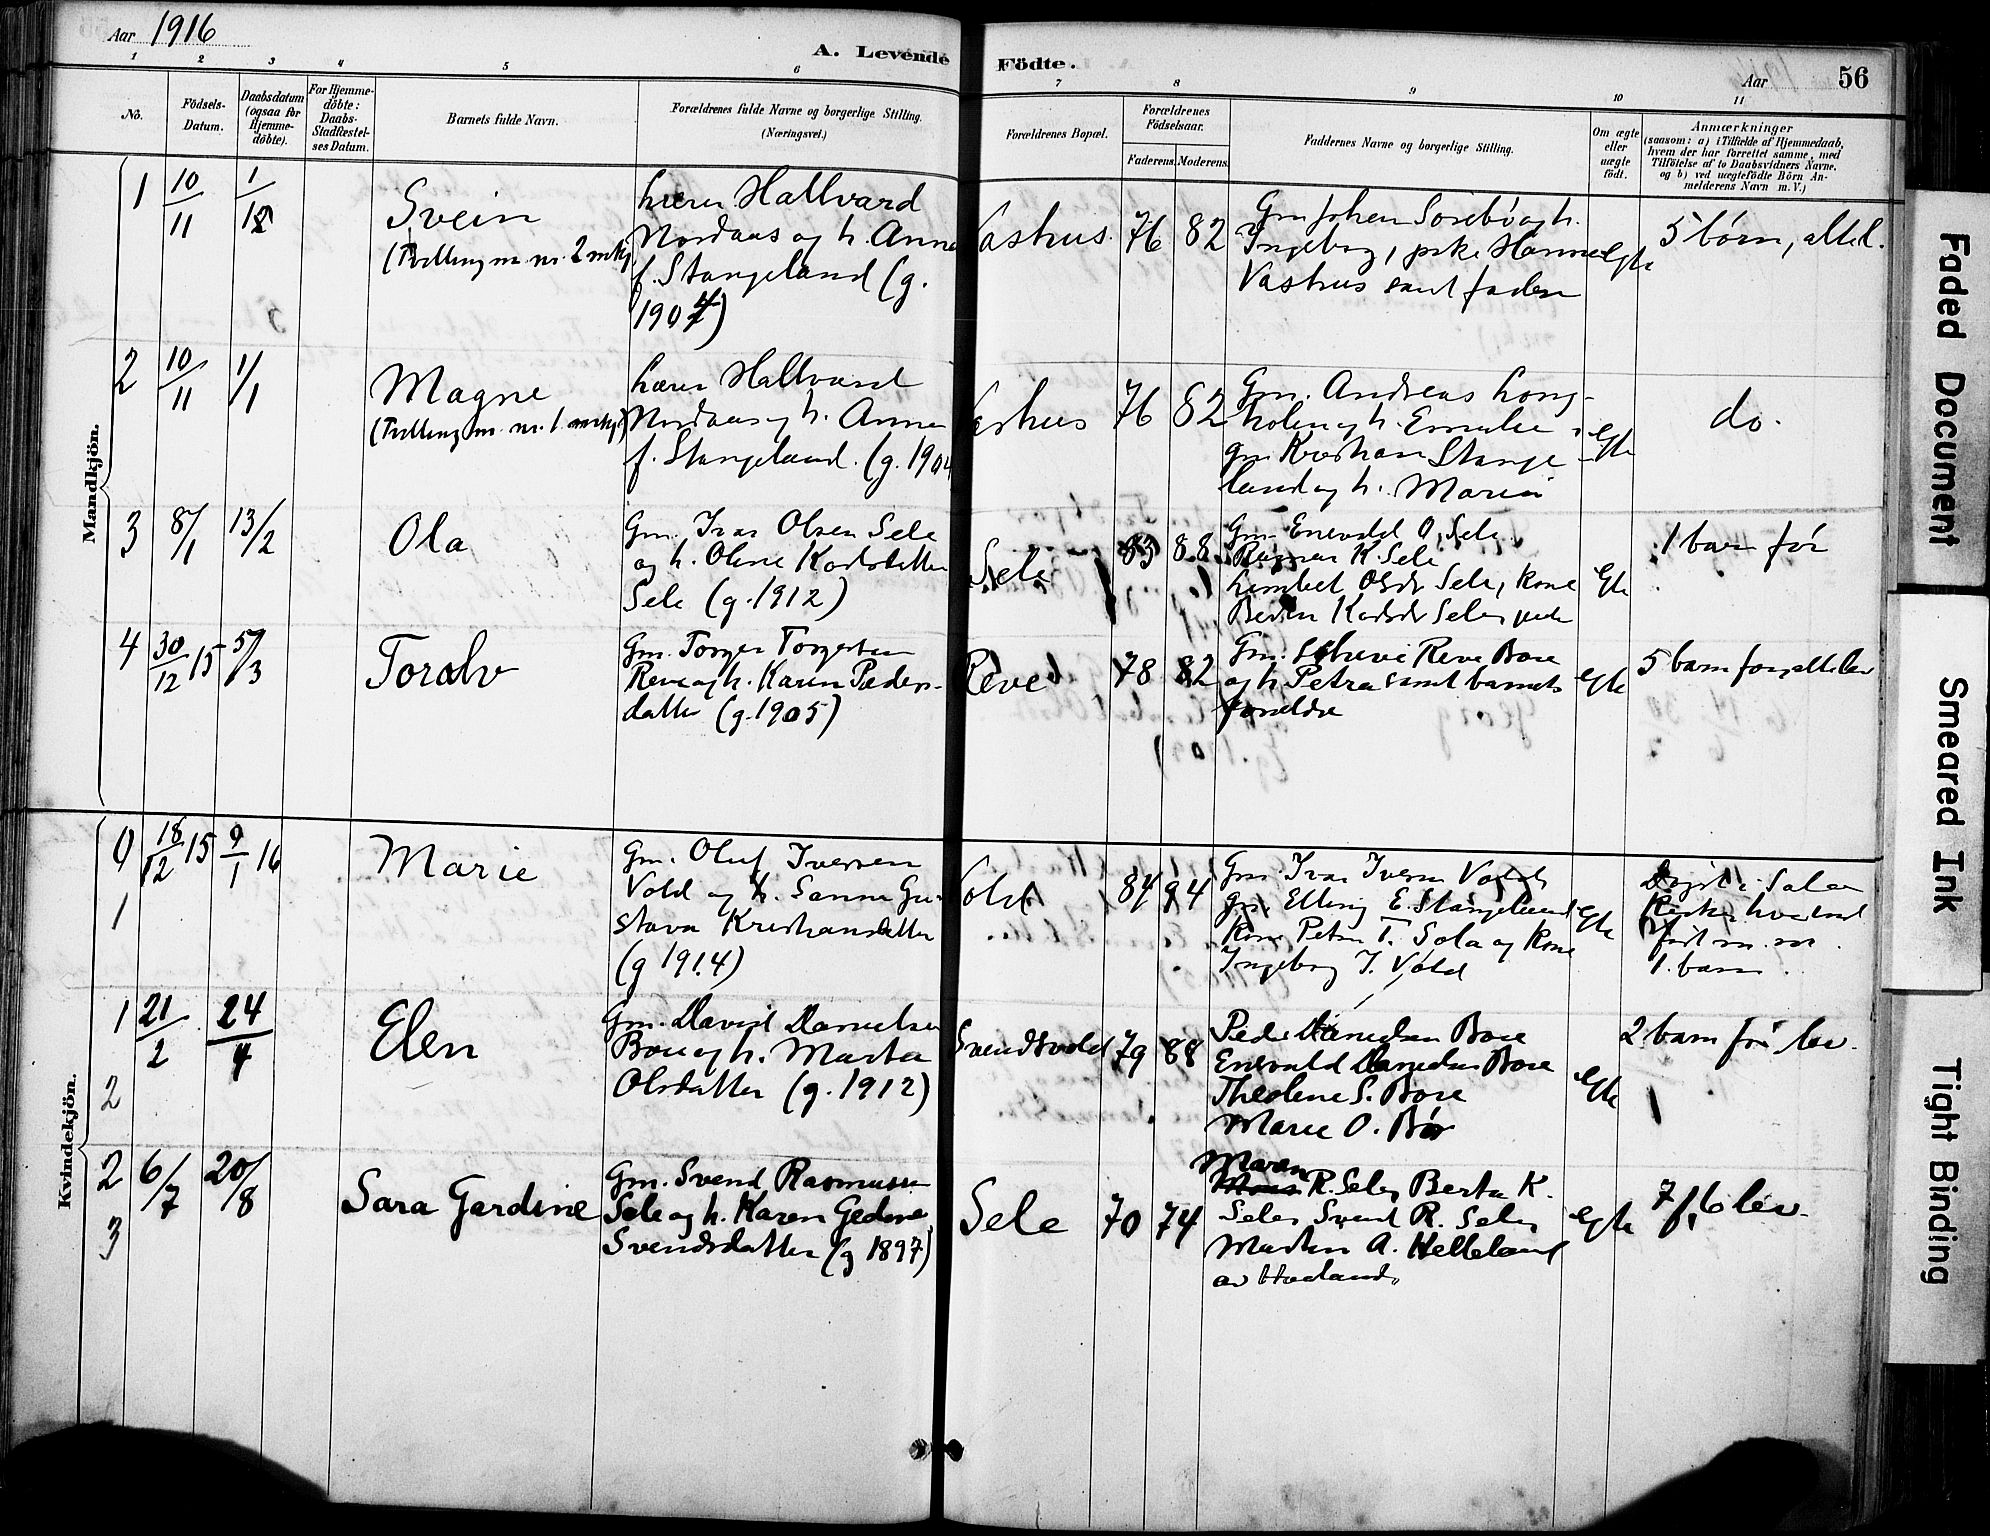 Aar 1916
A. Levende Födte.
Aar 56
1 2 3 4 5 6 7 8 9 10 11
No.
Födsels-
Datum.
Daabsdatum
(ogsaa for
Hjemme-
döbte).
For Hjemme-
döbte:
Daabs-
Stadfæstel-
ses Datum.
Barnets fulde Navn.
Forældrenes fulde Navne og borgerlige Stilling.
(Næringsvei.)
Forældrenes Bopæl.
Forældrenes
Födselsaar.
Faderens. Moderens.
Faddernes Navne og borgerlige Stilling.
Om ægte
eller
uægte
födt.
Anmærkninger
(saasom: a) i Tilfælde af Hjemmedaab,
hvem der har forrettet samme, med
Tilföielse af to Daabsvidners Navne,
og b) ved uægtefödte Börn An-
melderens Navn m. V.)
Mandkjön.
1 10/11 1/1
Svein
(Tvilling m. nr. 2 mkj
Lærer Hallvard
Nordaas og h. Anna
f. Stangeland (g.
1904)
Vashus 76 82
Gm Johan Sørebø og h.
Ingeborg, pike Hanna
Vashus samt faderen
egte
5 børn, alle l.
2 10/11 1/1
Magne
(Tvilling m. nr. 1 mkj)
Lærer Hallvard
Nordaas og h. Anna
f. Stangeland. (g. 1904
Vashus 76 82
Gm. Andreas Long-
holm og h. Emilie
gm. Kristian Stange
land og h. Maria
egte
do.
3 8/1 13/2
Ola
Gm. Ivar Olsen Sele
og h. Olene Karlsdatter
Sele (g. 1912)
Sele 83 88
Gm. Enevald O. Sele
Rasmus K. Sele
Lisabet Olsdr Sele, kone
Karlsdr Sele, pike
Egte
1 barn før
4 30/12 15 5/3
Toralv
Gm. Torger Torgersen
Reve og h. Karen Peders-
datter (g. 1905)
Reve 78 82
Gm. Reve Bore
og h. Petra samt barnets
forældre
egte
5 barn før, alle lev
Kvindekjön.
0 18/12 15 9/1 16
1
Marie
Gm. Oluf Iversen
Vold og h. Sanna Gu-
stava Kristiansdatter
(g 1914)
Vold 84 94
Gm Ivar Iversen Vold
gm. Elling E. Stangeland
Kone Petra T. Sola og kone
Ingeborg I. Vold
egte
Døpt i Sola
Kirke,
1. barn.
1 21/2 24/4
2
Elen
Gm. David Danielsen
Bore og h. Marta
Olsdatter (g. 1912)
Svendsvold 79 88
Peder Danielsen Bore
Enevald Danielsen Bore
Theoline S. Bore
Marie O. Bore
egte
2 barn før lev.
2 6/7 20/8
3
Sara Gerdine
Gm. Svend Rasmussen
Sele og h. Karen Gedine
Svendsdatter (g 1897)
Sele 70 74
Maren
R. Sele, Berta K.
Sele, Svend R. Sele,
Morten A. Helleland
av Hadland.
egte
7 f, 6 lev.
Faded Document
Smeared Ink
Tight Binding